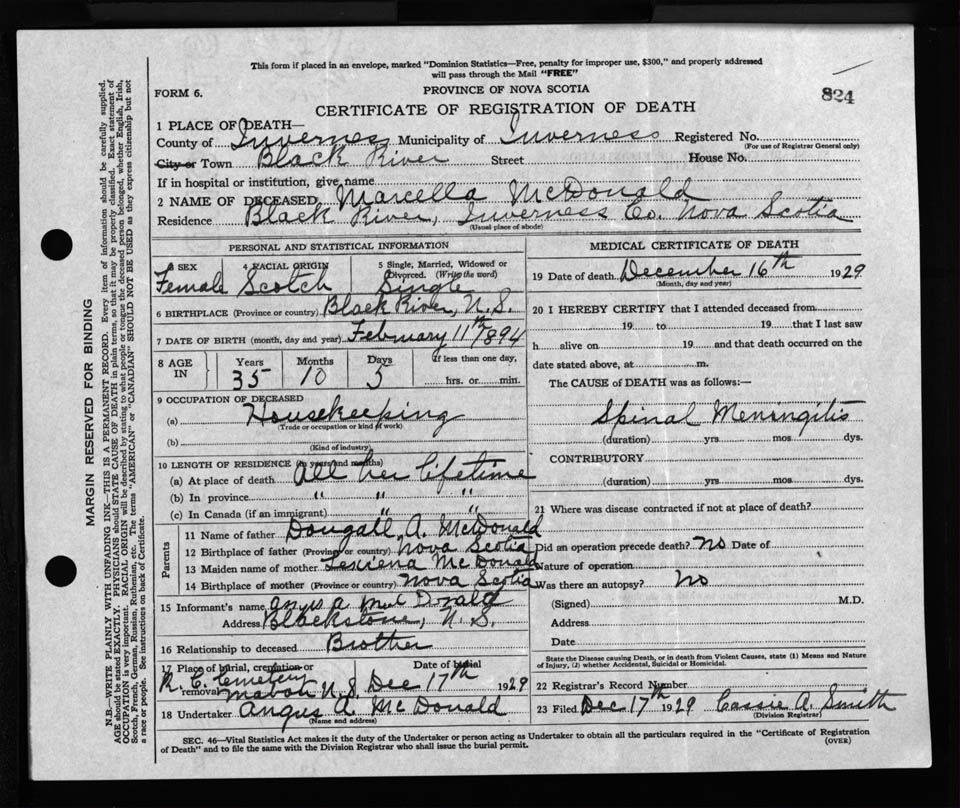 This form if placed in an envelope, marked "Dominion Statistics—Free, penalty for improper use, $300," and properly addressed
will pass through the Mail "FREE"
FORM 6.
PROVINCE OF NOVA SCOTIA
824
CERTIFICATE OF REGISTRATION OF DEATH
1 PLACE OF DEATH—
County of Inverness Municipality of Inverness Registered No.
(For use of Registrar General only)
City or Town Black River Street House No.
If in hospital or institution, give name
2 NAME OF DECEASED Marcella McDonald
Residence Black River, Inverness Co. Nova Scotia
(Usual place of abode)
PERSONAL AND STATISTICAL INFORMATION
3 SEX 4 RACIAL ORIGIN 5 Single, Married, Widowed or Divorced. (Write the word)
Female Scotch Single
6 BIRTHPLACE (Province or country) Black River, N.S.
7 DATE OF BIRTH (month, day and year) February 11th 1894
8 AGE IN Years Months Days If less than one day,
35 10 5 hrs. or min.
9 OCCUPATION OF DECEASED
(a) Housekeeping
(Trade or occupation or kind of work)
(b)
(Kind of industry)
10 LENGTH OF RESIDENCE (in years and months)
(a) At place of death All her lifetime
(b) In province " " "
(c) In Canada (if an immigrant) " "
Parents
11 Name of father Dougall A. McDonald
12 Birthplace of father (Province or country) Nova Scotia
13 Maiden name of mother McDonald
14 Birthplace of mother (Province or country) Nova Scotia
15 Informant's name Angus A. McDonald
Address Blackstone, N.S.
16 Relationship to deceased Brother
17 Place of burial, cremation or removal Date of burial
R. C. Cemetery
Mabou N.S. Dec 17th 1929
18 Undertaker Angus A McDonald
(Name and address)
MEDICAL CERTIFICATE OF DEATH
19 Date of death December 16th 1929
(Month, day and year)
20 I HEREBY CERTIFY that I attended deceased from
19 to 19 that I last saw
h alive on 19 and that death occurred on the
date stated above, at m.
The CAUSE of DEATH was as follows:—
Spinal Meningitis
(duration) yrs mos dys.
CONTRIBUTORY
(duration) yrs. mos. dys.
21 Where was disease contracted if not at place of death?
Did an operation precede death? No Date of
Nature of operation
Was there an autopsy? No
(Signed) M.D.
Address
Date
State the Disease causing Death, or in death from Violent Causes, state (1) Means and Nature
of Injury, (2) whether Accidental, Suicidal or Homicidal.
22 Registrar's Record Number
23 Filed Dec 17th 1929 Cassie A. Smith
(Division Registrar)
SEC. 46—Vital Statistics Act makes it the duty of the Undertaker or person acting as Undertaker to obtain all the particulars required in the "Certificate of Registration
of Death" and to file the same with the Division Registrar who shall issue the burial permit.
(OVER)
MARGIN RESERVED FOR BINDING
N.B.—WRITE PLAINLY WITH UNFADING INK—THIS IS A PERMANENT RECORD. Every item of information should be carefully supplied.
AGE should be stated EXACTLY. PHYSICIANS should STATE CAUSE OF DEATH in plain terms, so that it may be properly classified. Exact statement of
OCCUPATION is very important. RACIAL ORIGIN will be described by stating to what people or tongue the deceased person belonged, whether English, Irish,
Scotch, French, German, Russian, Ruthenian, etc. The terms "AMERICAN" or "CANADIAN" SHOULD NOT BE USED as they express citizenship but not
a race or people. See instructions on back of Certificate.